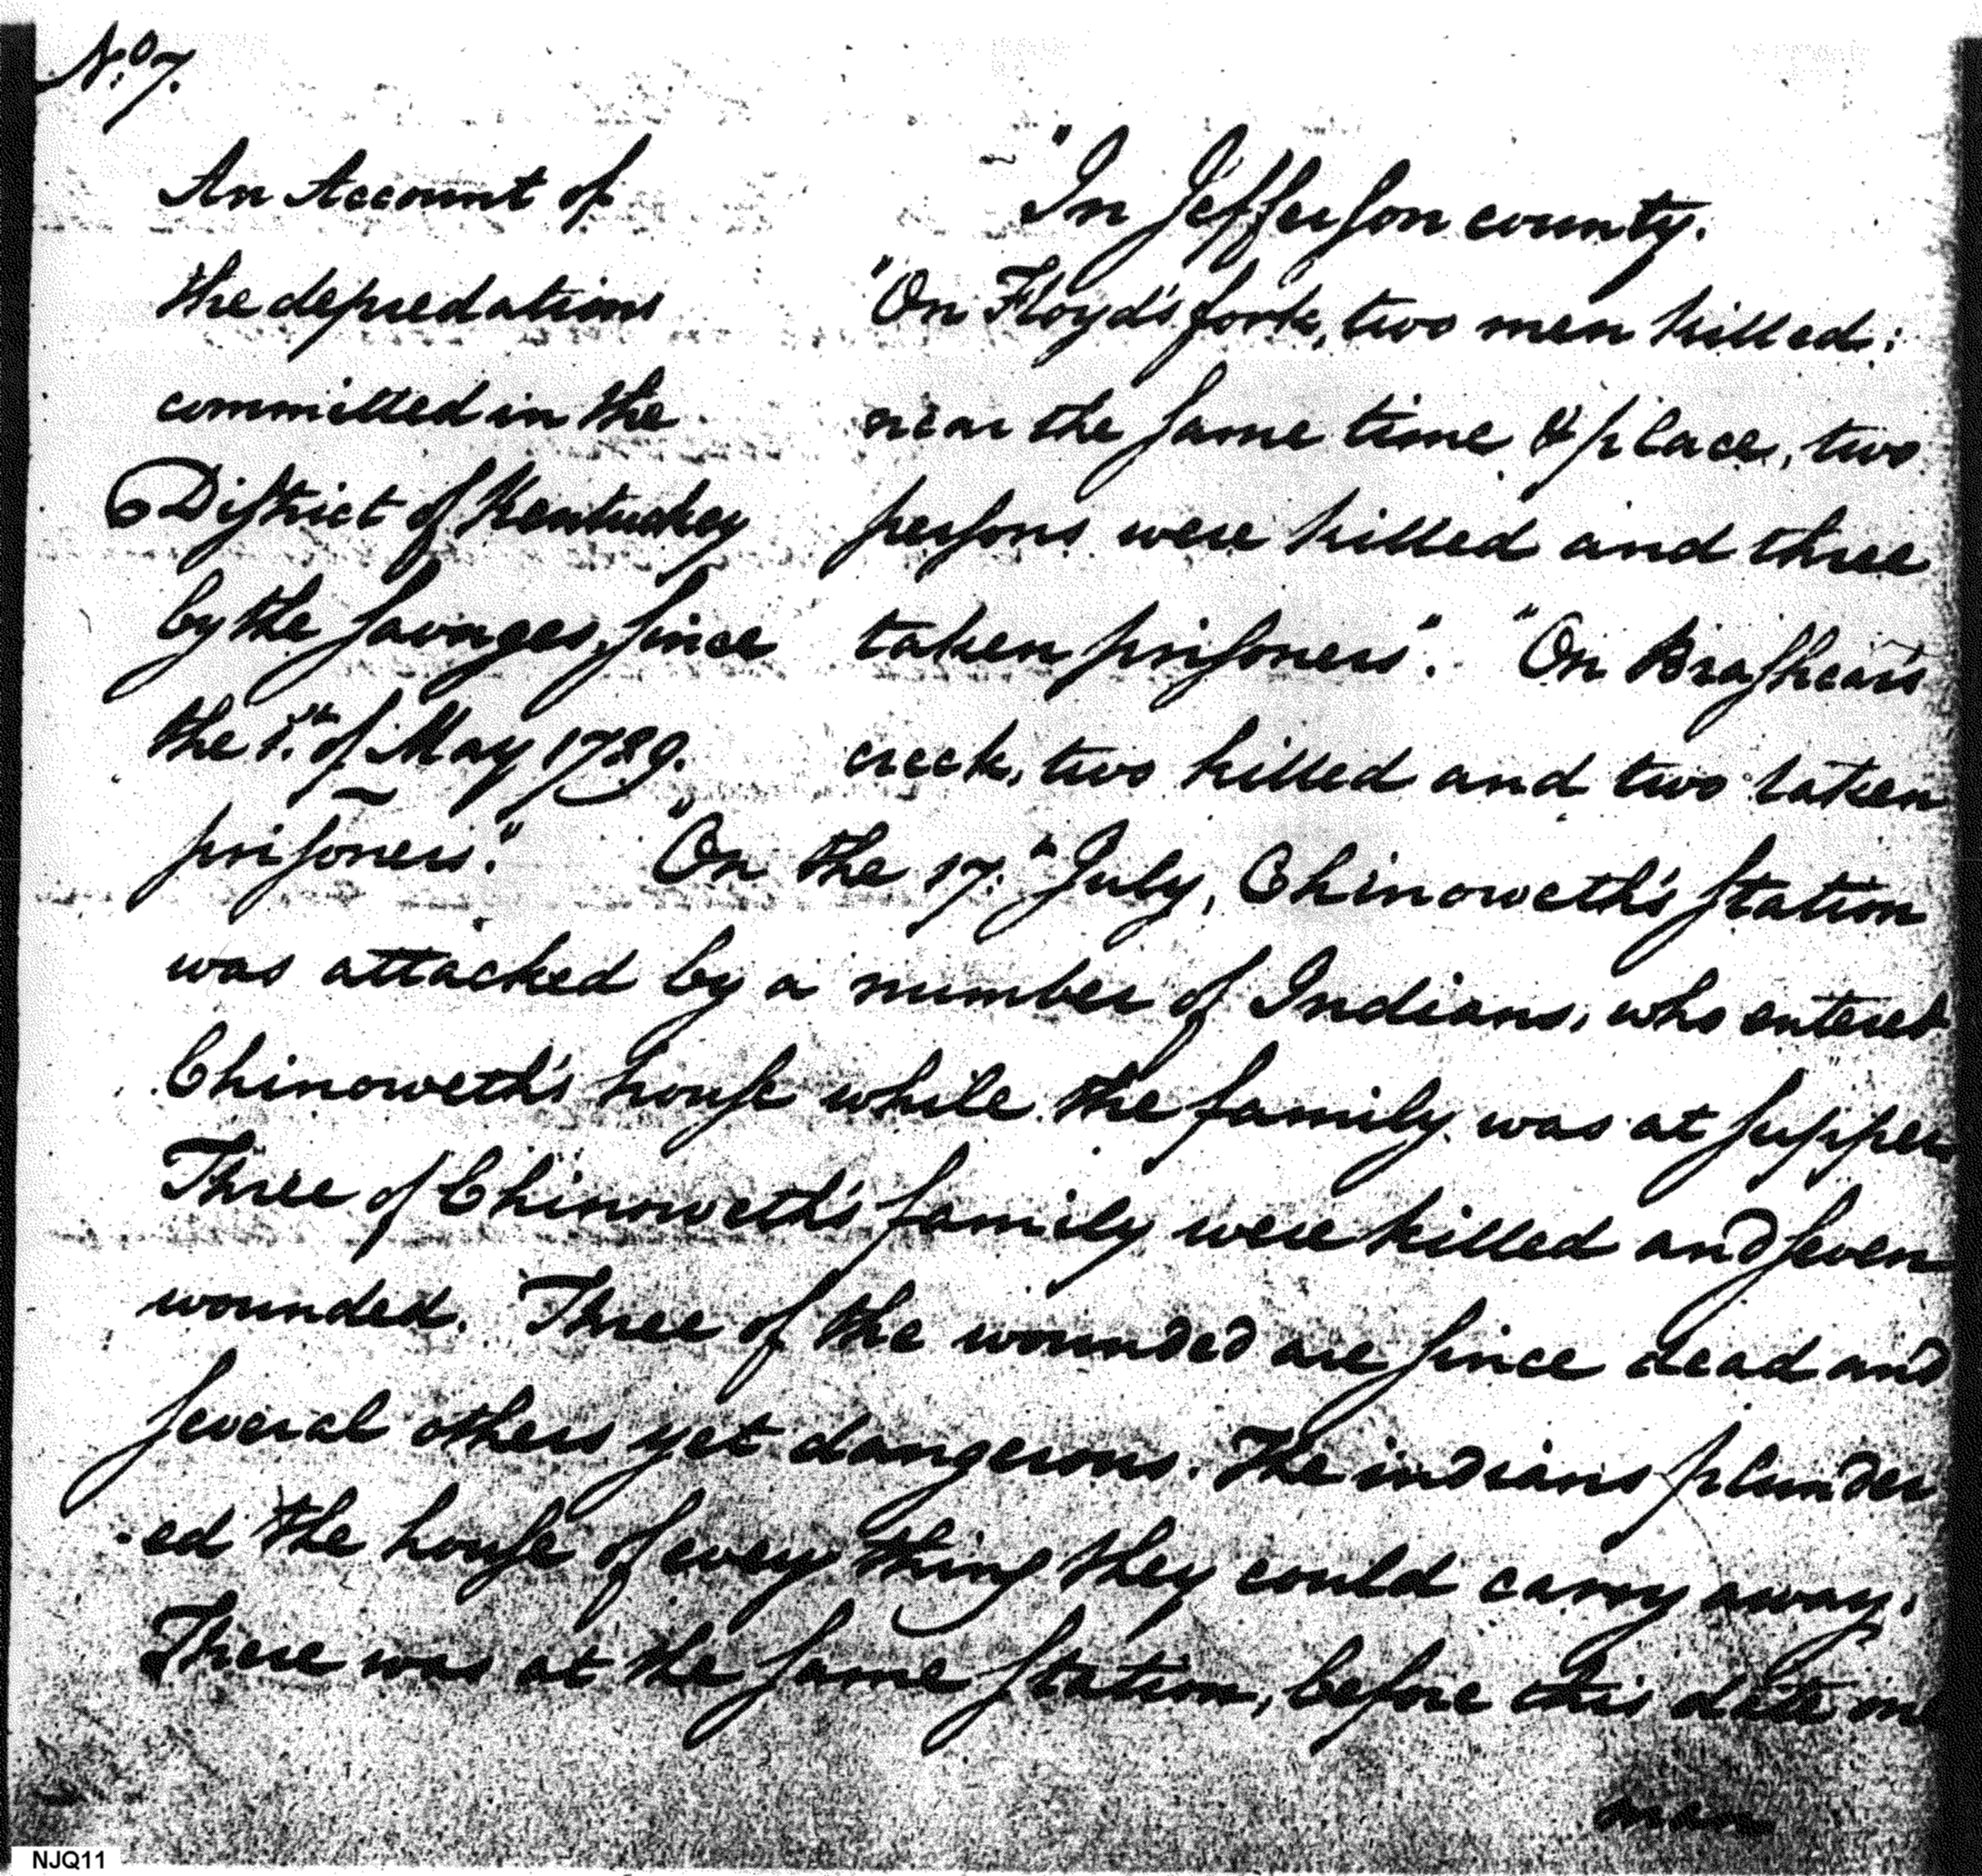 No. 7.
An Account of
the depredations
committed in the
District of Kentuckey
by the savages, since
the 1st. of May 1789.
"In Jefferson county.
"On Floyd's fork, two men killed:
near the same time & place, two
persons were killed and three
taken prisoners". "On Brashear's
creek, two killed and two taken
prisoners." "On the 17th. July, Chinoweth's station
was attacked by a number of Indians, who entered
Chinoweth's house while the family was at supper
Three of Chinoweth's family were killed and seven
wounded. Three of the wounded are since dead and
several others yet dangerous. The indians plunder
-ed the house of every thing they could carry away.
There was at the same station, before this date
man
NJQ11